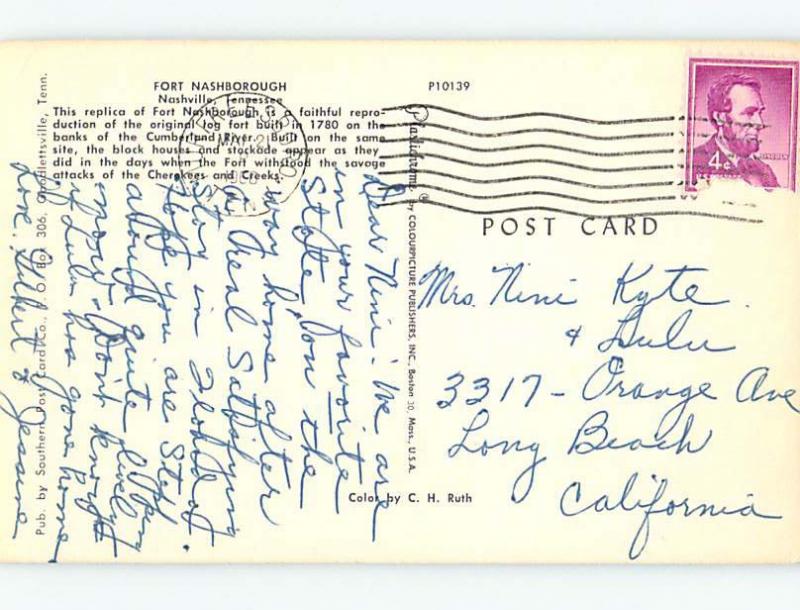 FORT NASHBOROUGH
Nashville, Tennessee
This replica of Fort Nashborough is a faithful repro-
duction of the original log fort built in 1780 on the
banks of the Cumberland River. Built on the same
site, the block houses and stockade appear as they
did in the days when the Fort withstood the savage
attacks of the Cherokees and Creeks.
P10139
Pub. by Southern Post Card Co., P. O. Box 306, Goodlettsville, Tenn.
Plastichrome ® by COLOURPICTURE PUBLISHERS, INC., Boston 30, Mass., U.S.A.
Color by C. H. Ruth
4¢
LINCOLN
POST CARD
Dear Nini: We are
in your favorite
State, on the
way home after
a real satisfying
stay in Florida.
Hope you are Still
about quite
now - Don't know
if Lulu has gone home
Love. Gilbert & Jessine
Mrs. Nini Kyte.
& Lulu
3317 - Orange Ave
Long Beach
California